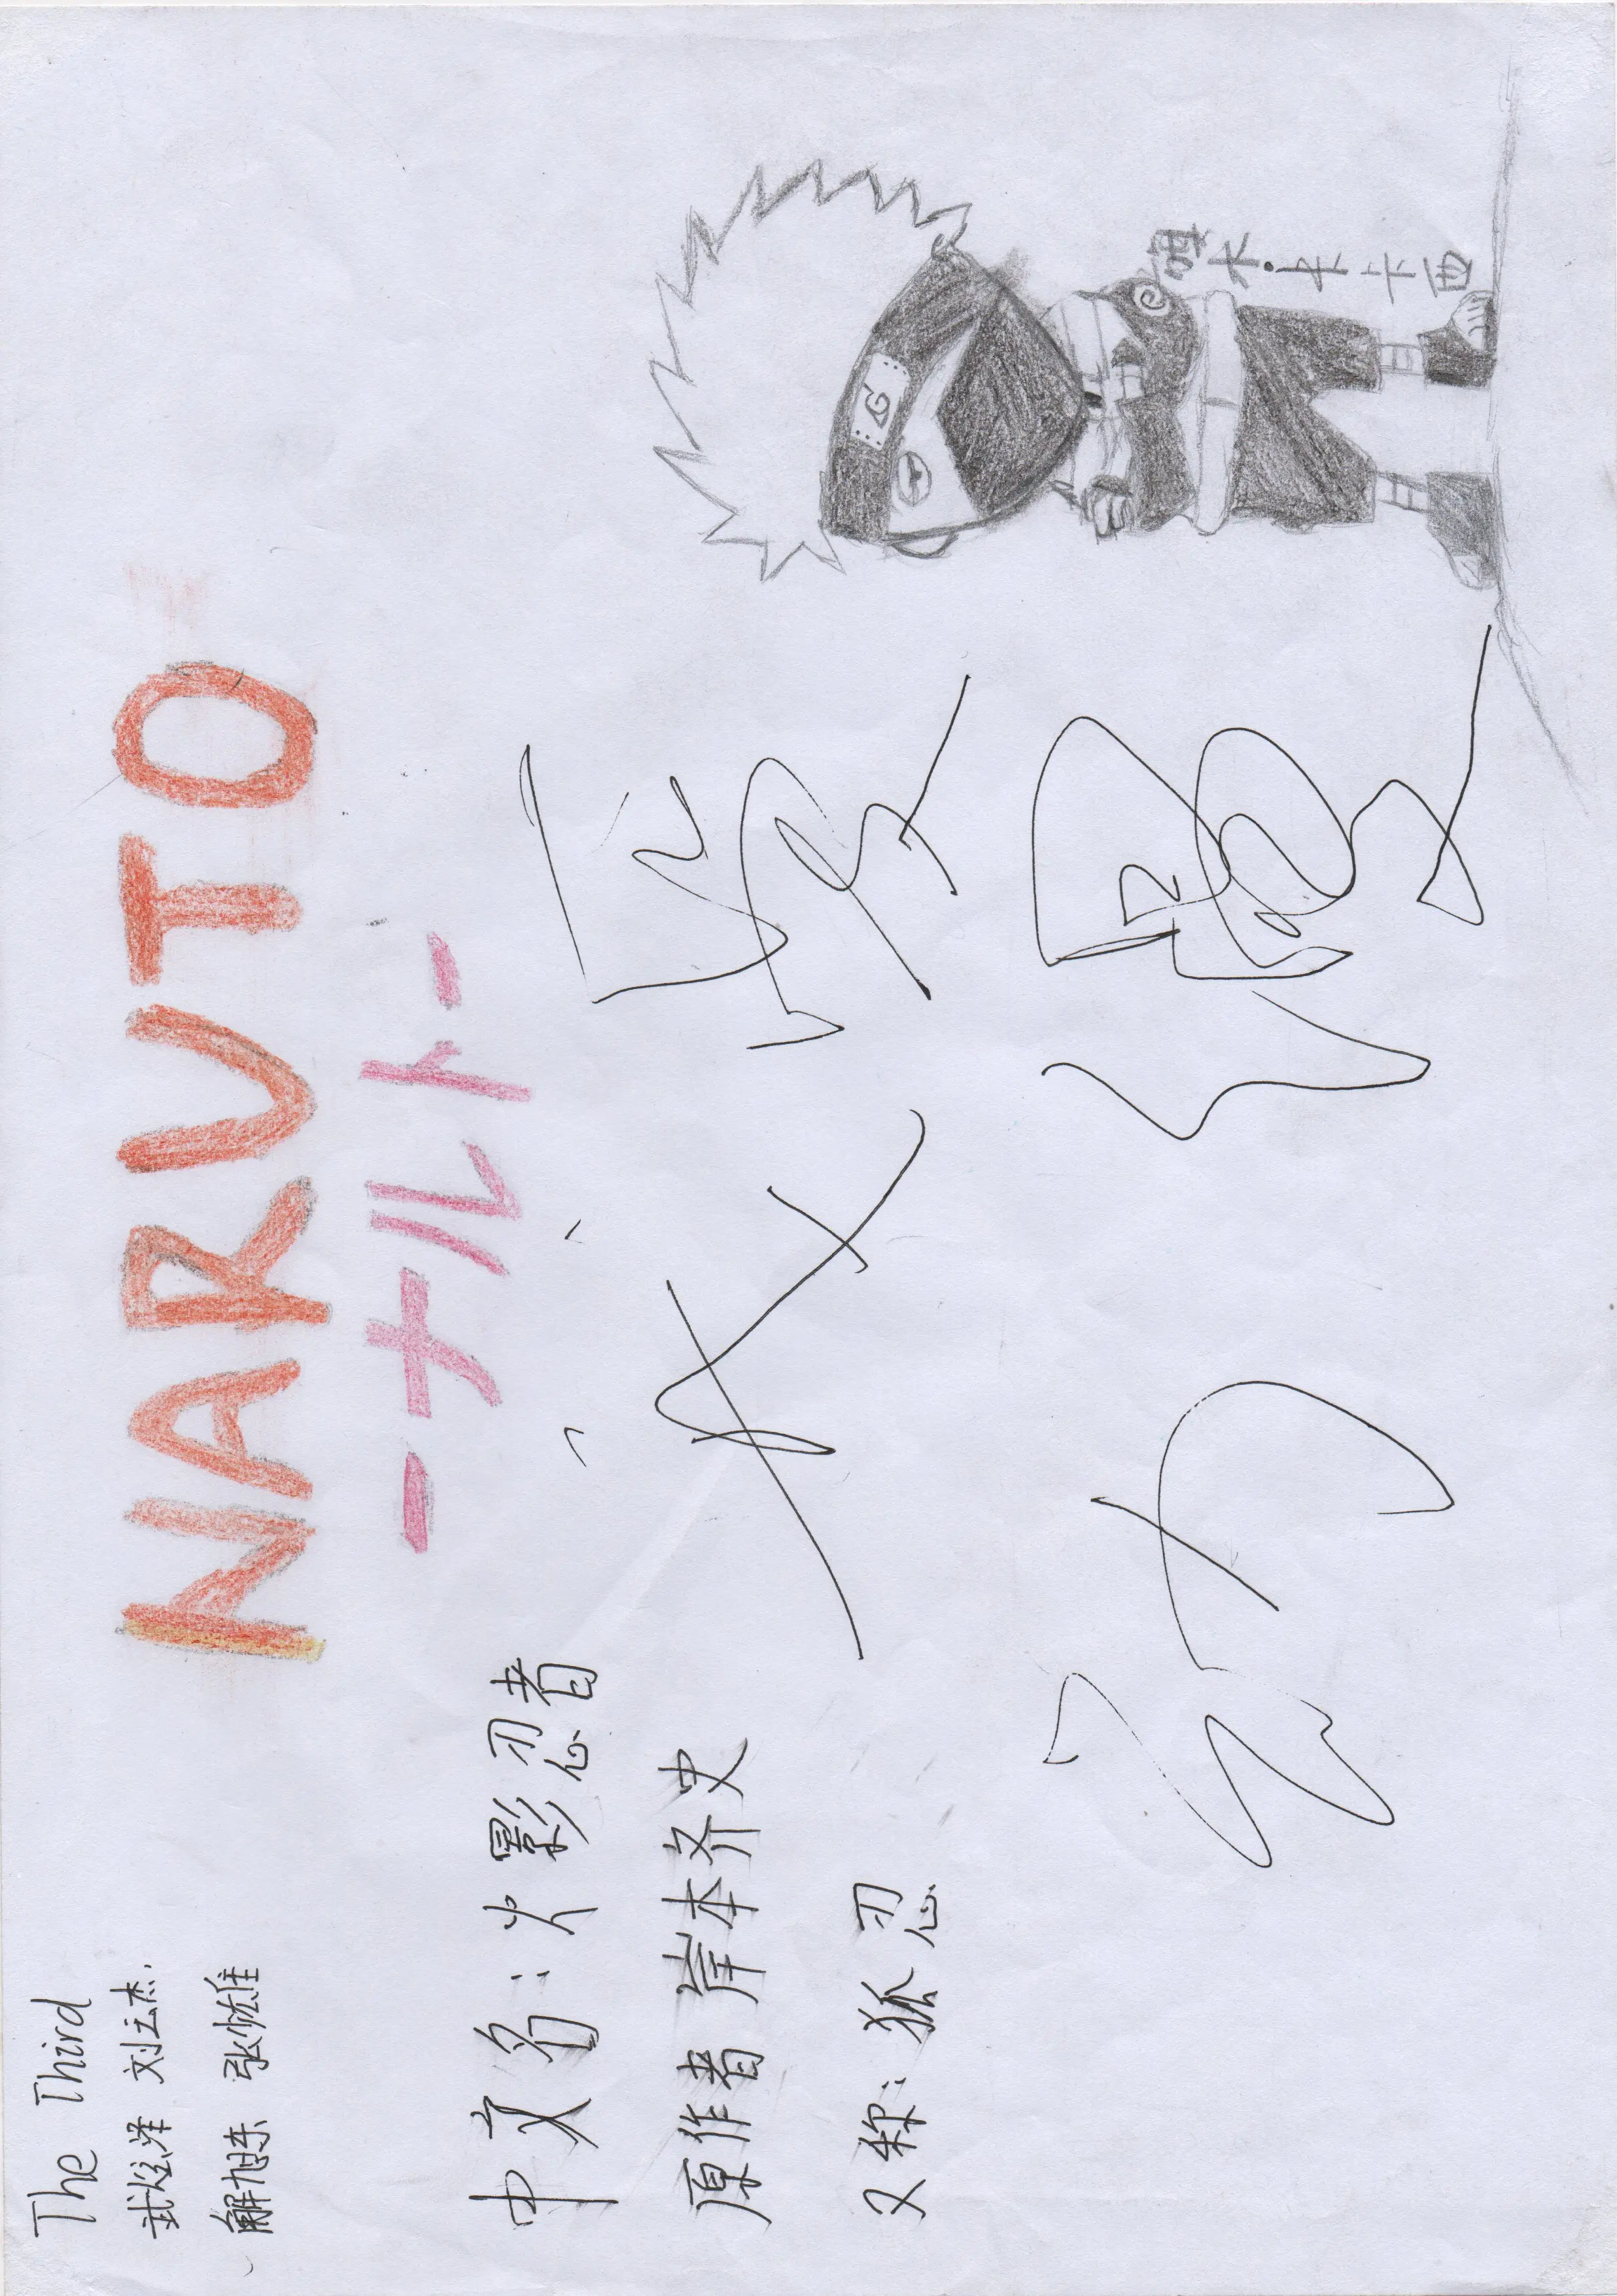 The Third
武炫泽 刘云杰.
解旭东 张
NARVTO
-ナルト-
中文名:火影忍者
原作者 岸本齐史
又称:狐忍
动漫
木·卡卡西